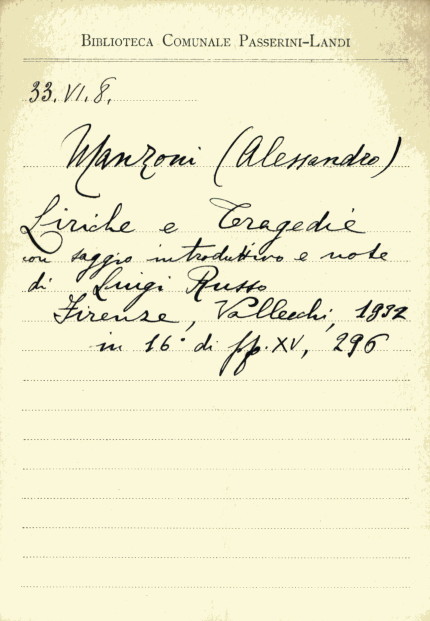 BIBLIOTECA COMUNALE PASSERINI-LANDI
33.VI.8.
Manzoni (Alessandro)
Liriche e Tragedie
con saggio introduttivo e note
di Luigi Russo
Firenze, Vallecchi, 1932
in 16° di pp. XV, 296